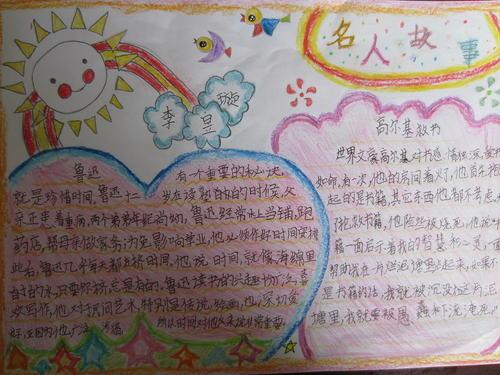 名人故事
李昱璇
鲁迅
有一个重要的秘诀,
就是珍惜时间,鲁迅十二岁在读私塾的时候,父
亲正患着重病,两个弟弟年纪尚幼,鲁迅经常上当铺,跑
药店,帮母亲做家务;为免影响学业,他必须作好时间安排
此后,鲁迅几乎每天都在挤时间,他说:时间,就像海绵里
的水,只要你挤,总是有的,鲁迅读书的兴趣
欢写作,他对于民间艺术,特别是传说、绘画,也深切爱
好,正因为他广
所以时间对他来说非常重要。
高尔基救书
世界文豪高尔基对书感情独深,爱书
如命,有一次,他的房间着火了,他首先抱
起的是书籍,其它东西他都不考虑,为
了抢救书籍,他险些被烧死,他说:书
籍一面启示着我的智慧和心灵,一面
帮助我在一片烂泥塘里站起来,如果不
是书籍的话,我就沉没在这片泥
塘里,我就要被愚蠢和下流淹死。